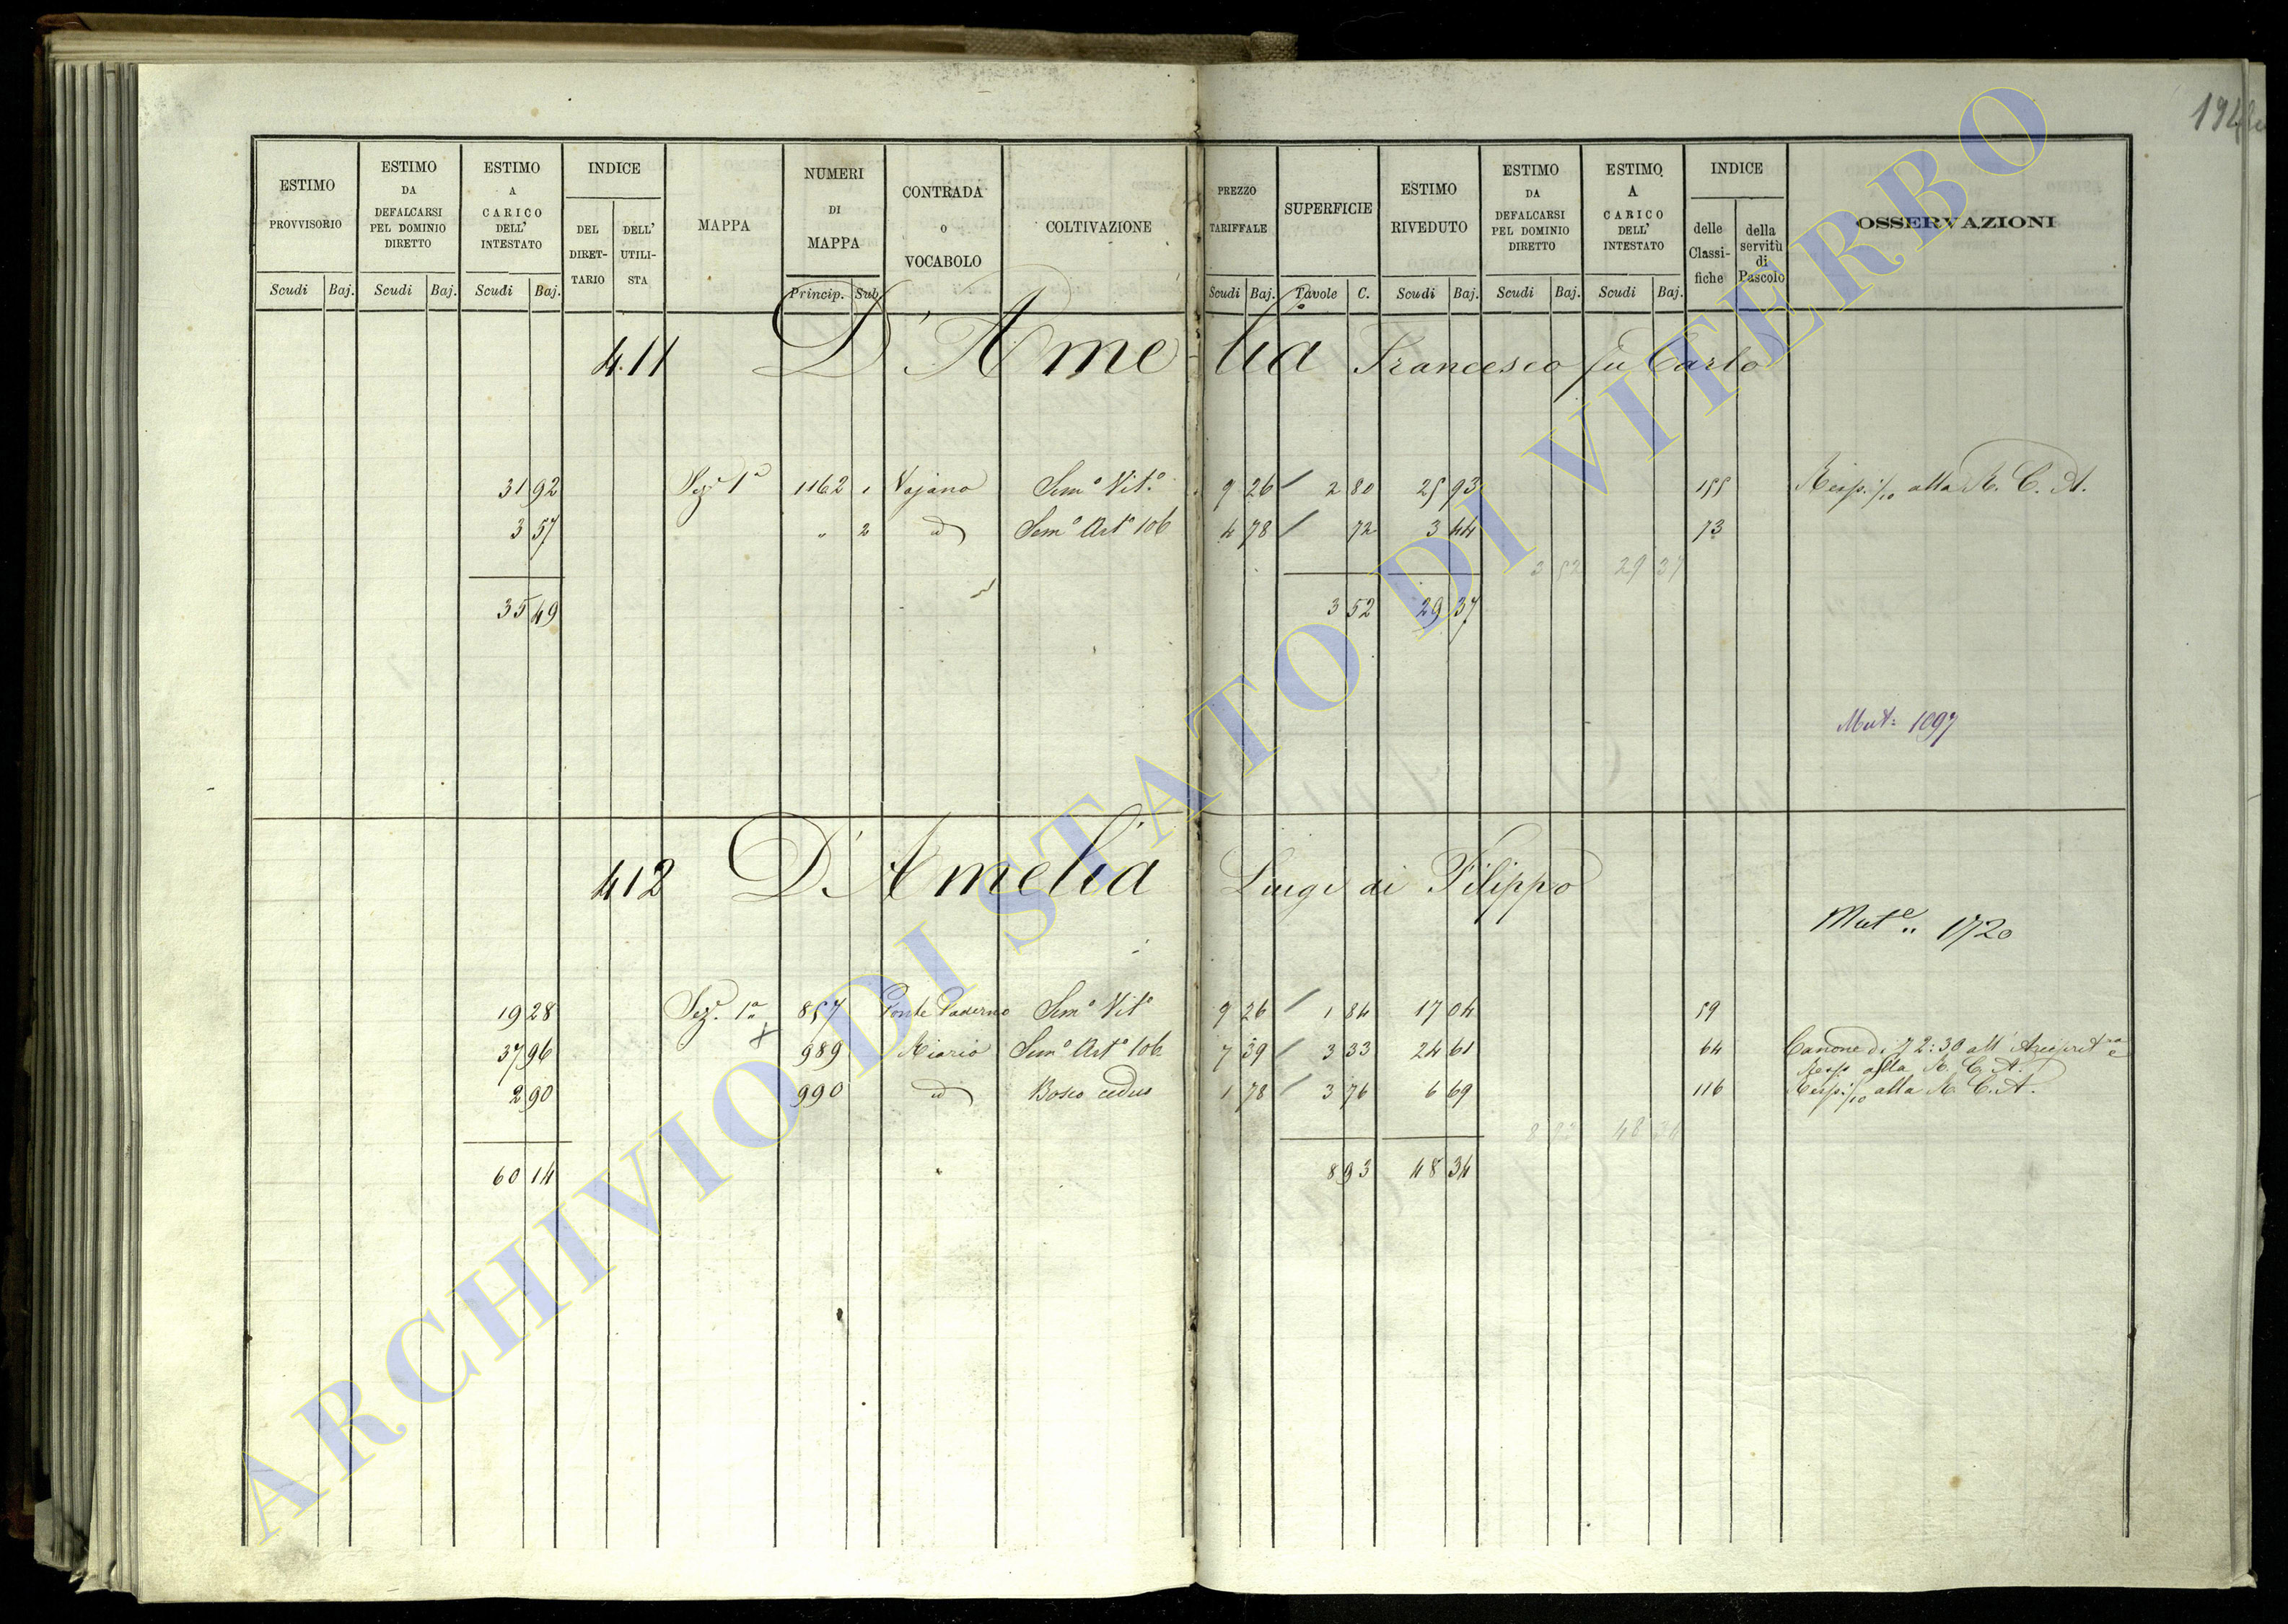 194
ESTIMO PROVVISORIO
ESTIMO DA DEFALCARSI PEL DOMINIO DIRETTO
ESTIMO A CARICO DELL' INTESTATO
INDICE
DEL DIRET-TARIO
DELL' UTILI-STA
MAPPA
NUMERI DI MAPPA
CONTRADA O VOCABOLO
COLTIVAZIONE
PREZZO TARIFFALE
SUPERFICIE
ESTIMO RIVEDUTO
ESTIMO DA DEFALCARSI PEL DOMINIO DIRETTO
ESTIMO A CARICO DELL' INTESTATO
INDICE
delle Classi-fiche
della servitù di Pascolo
OSSERVAZIONI
Scudi Baj. Scudi Baj. Scudi Baj. Princip. Sub. Scudi Baj. Tavole C. Scudi Baj. Scudi Baj. Scudi Baj.
411 D'Amelia Francesco fu Carlo
31 92 Sez.e 1a 1162 1 Vajano Sem.o Vit.o 9 26 / 2 80 25 93 155 Risp. 1/10 alla R. C. A.
3 57 " 2 id Sem.o Art.o 106 4 78 / 72 3 44 73
3 52 29 37
35 49 3 52 29 37
Mut: 1097
412 D'Amelia Luigi di Filippo
Mut.e .. 1720
19 28 Sez.e 1a 857 Ponte Paderno Sem.o Vit.o 9 26 / 1 84 17 04 59
37 96 989 Riario Sem.o Art.o 106 7 39 / 3 33 24 61 64 Canone di 2:30 all'
Resp. alla R. C. A.
2 90 990 id Bosco ceduo 1 78 / 3 76 6 69 116 Resp. 1/10 alla R. C. A.
8 93 48 34
60 14 8 93 48 34
ARCHIVIO DI STATO DI VITERBO